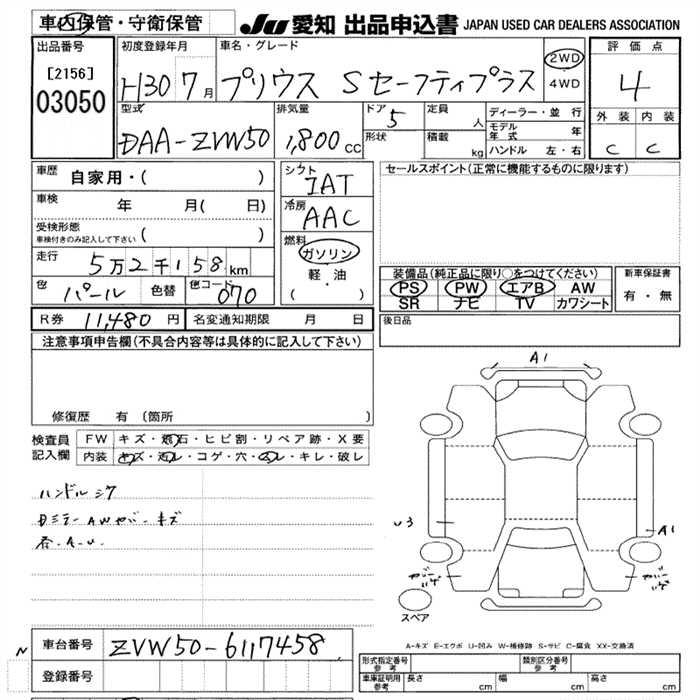 車内保管・守衛保管
JU 愛知 出品申込書 JAPAN USED CAR DEALERS ASSOCIATION
出品番号
[2156]
03050
初度登録年月
H30 7月
車名・グレード
プリウス Sセーフティプラス
2WD
4WD
評価点
4
外装 内装
C C
型式
DAA-ZVW50
排気量
1,800cc
ドア
5
形状
定員
人
積載
kg
ディーラー・並行
モデル年式 年
ハンドル 左・右
車歴
自家用・( )
車検
年 月( 日)
受検形態
車検付きのみ記入して下さい ( )
走行
5万2千158km
色
パール
色替
色コード
070
シフト
IAT
冷房
AAC
燃料
ガソリン
軽・油
( ・ )
セールスポイント(正常に機能するものに限ります)
装備品(純正品に限り○をつけてください)
PS PW エアB AW
SR ナビ TV カワシート
新車保証書
有・無
R券 11,480円
名変通知期限 月 日
後日品
注意事項申告欄(不具合内容等は具体的に記入して下さい)
修復歴 有 (箇所 )
検査員
記入欄
FW キズ・飛石・ヒビ割・リペア跡・X要
内装 キズ・汚レ・コゲ・穴・スレ・キレ・破レ
ハンドルシワ
A1
U3
A1
スペア
A-キズ E-エクボ U-凹み W-補修跡 S-サビ C-腐食 XX-交換済
N
車台番号
ZVW50-6117458
登録番号
形式指定番号
参考
類別区分番号
参考
車庫証明用
参考
長さ cm
幅 cm
高さ cm